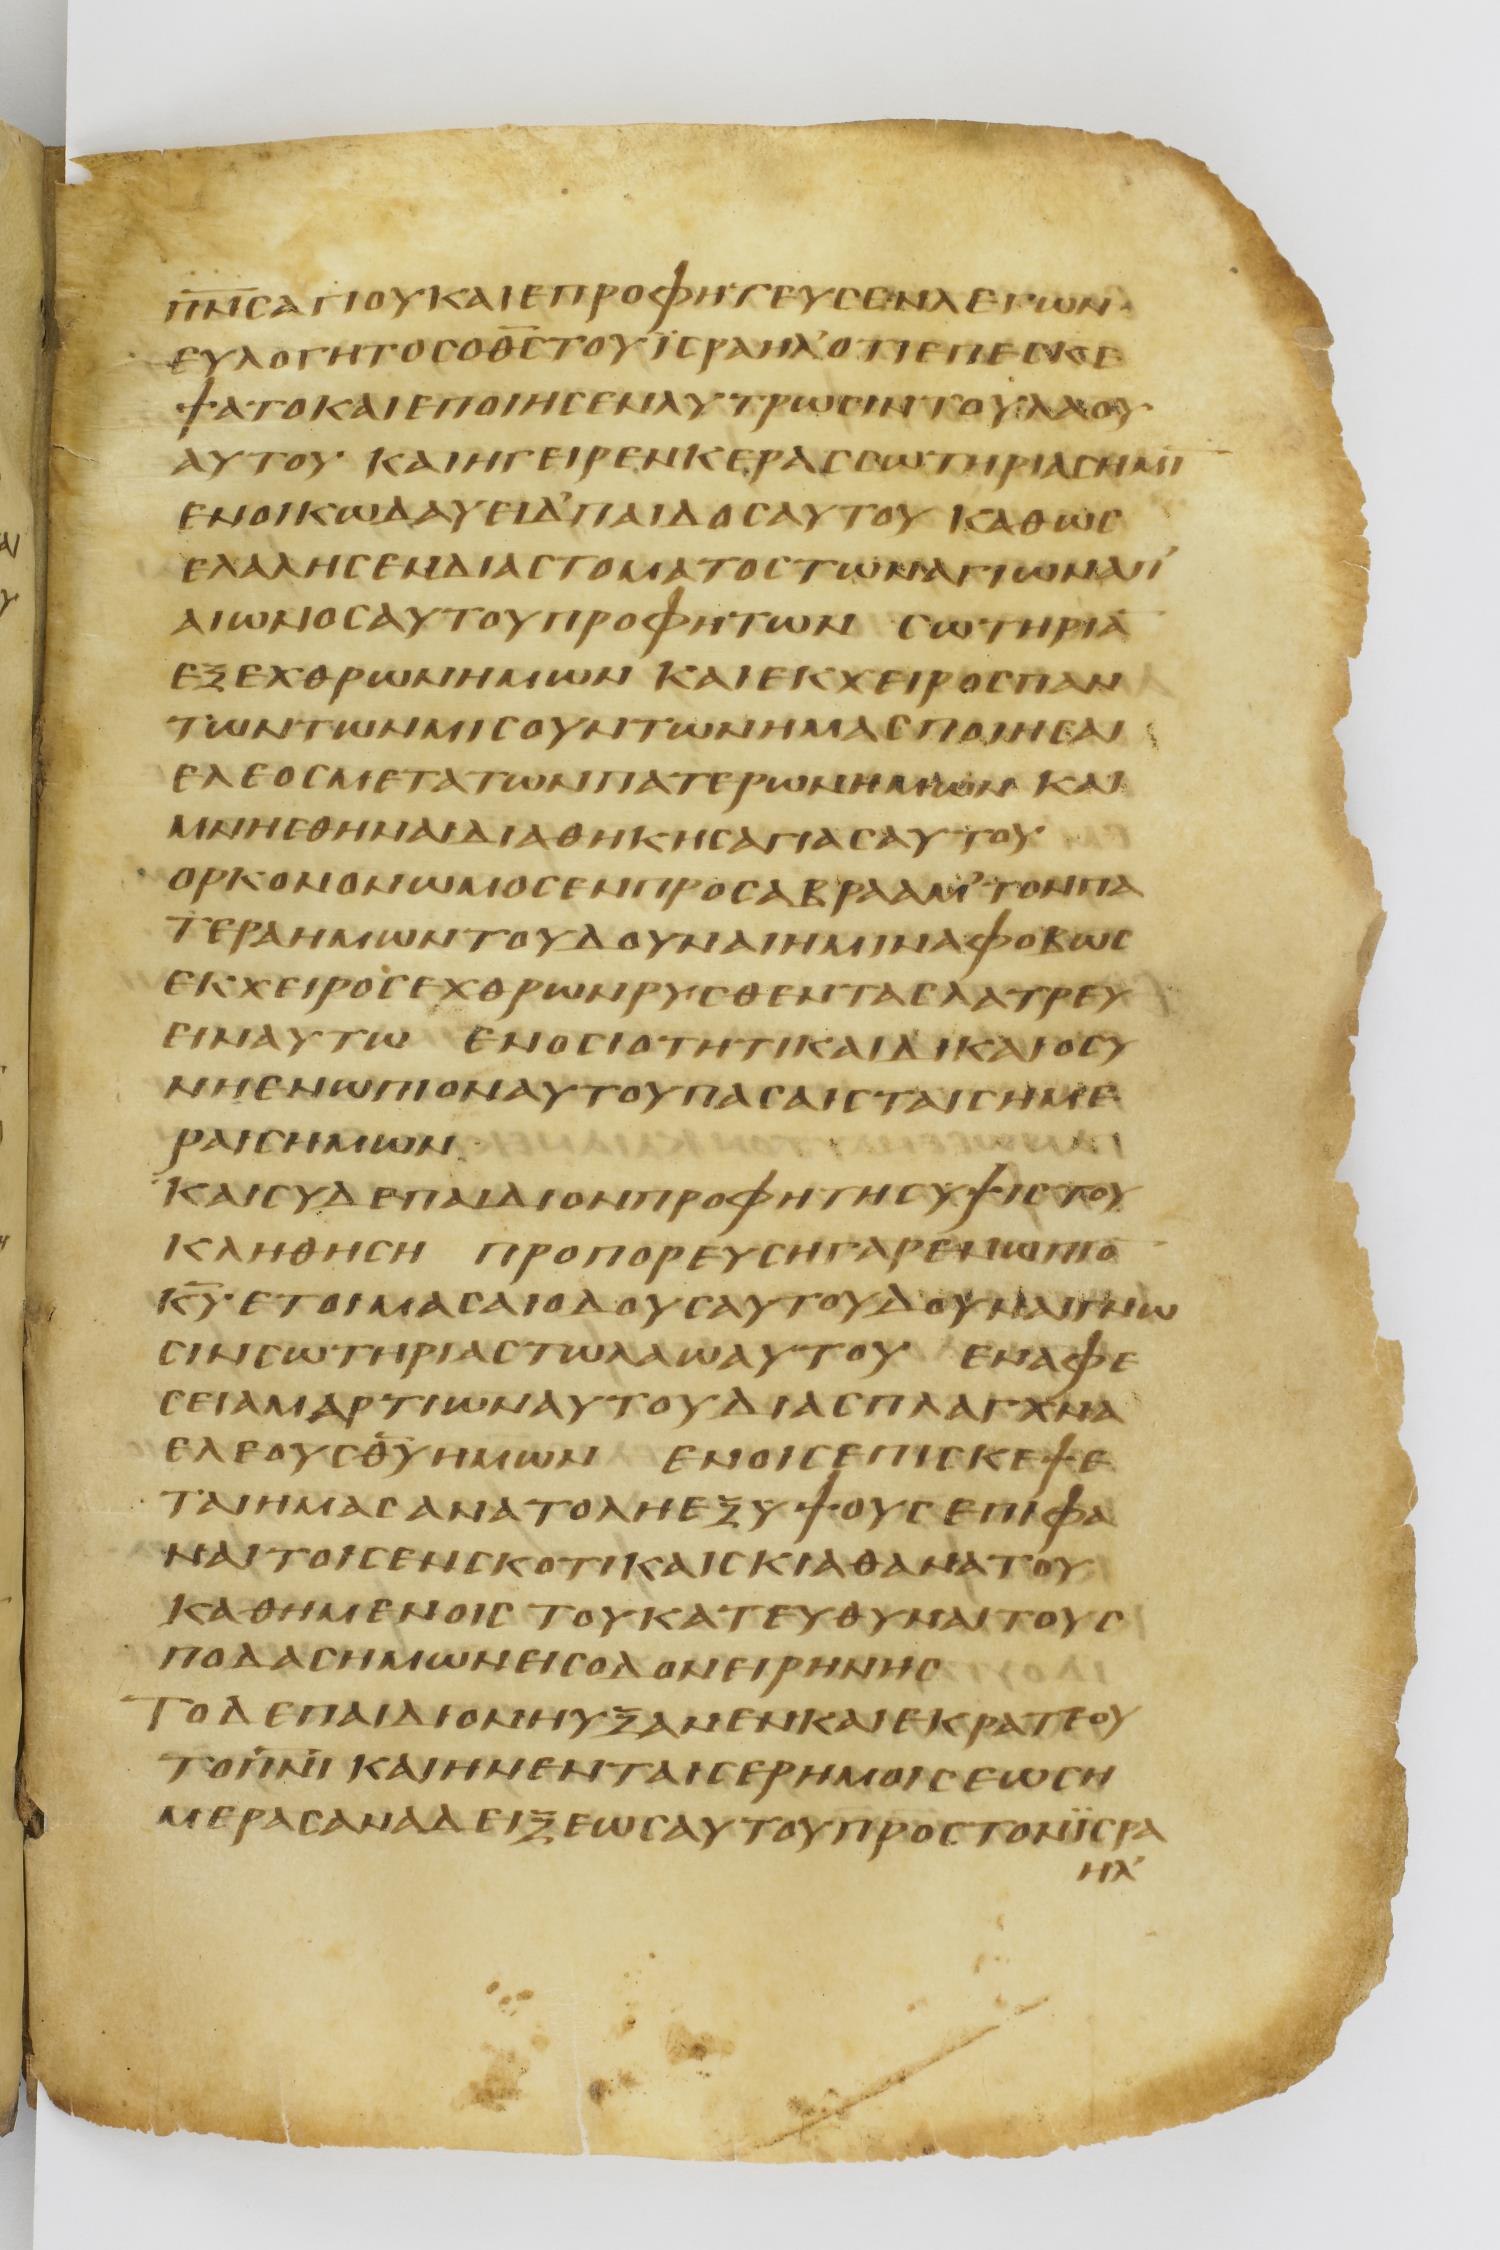 π̅ν̅ς̅ αγιου και επροφητευσεν λεγων
ευλογητος ο θ̅ς̅ του ϊσραηλ’ οτι επεσκε
ψατο και εποιησεν λυτρωσιν του λαου
αυτου και ηγειρεν κερας σωτηριας ημῖ
εν οικω δαυειδ’ παιδος αυτου καθως
ελαλησεν δια στοματος των αγιων απ’
αιωνος αυτου προφητων σωτηρια̅
εξ εχθρων ημων και εκ χειρος παν
των των μισουντων ημας ποιησαι
ελεος μετα των πατερων ημων και
μνησθηναι διαθηκης αγιας αυτου
ορκον ον ωμοσεν προς αβρααμ’ τον πα
τερα ημων του δουναι ημιν αφοβως
εκ χειρος εχθρων ρυσθεντας λατρευ
ειν αυτω εν οσιοτητι και δικαιοσυ
νη ενωπιον αυτου πασαις ταις ημε
ραις ημων
και συ δε παιδιον προφητης υψιστου
κληθηση προπορευση γαρ ενωπιο̅
κ̅υ̅ ετοιμασαι οδους αυτου δουναι γνω
σιν σωτηριας τω λαω αυτου εν αφε
σει αμαρτιων αυτου δια σπλαγχνα
ελεους θ̅υ̅ ημων εν οις επισκεψε
ται ημας ανατολη εξ υψους επιφα
ναι τοις εν σκοτι και σκια θανατου
καθημενοις του κατευθυναι τους
ποδας ημων εις οδον ειρηνης
Το δε παιδιον ηυξανεν και εκρατεου
το π̅ν̅ι̅ και ην εν ταις ερημοις εως η
μερας αναδειξεως αυτου προς τον ϊσρα
ηλ’